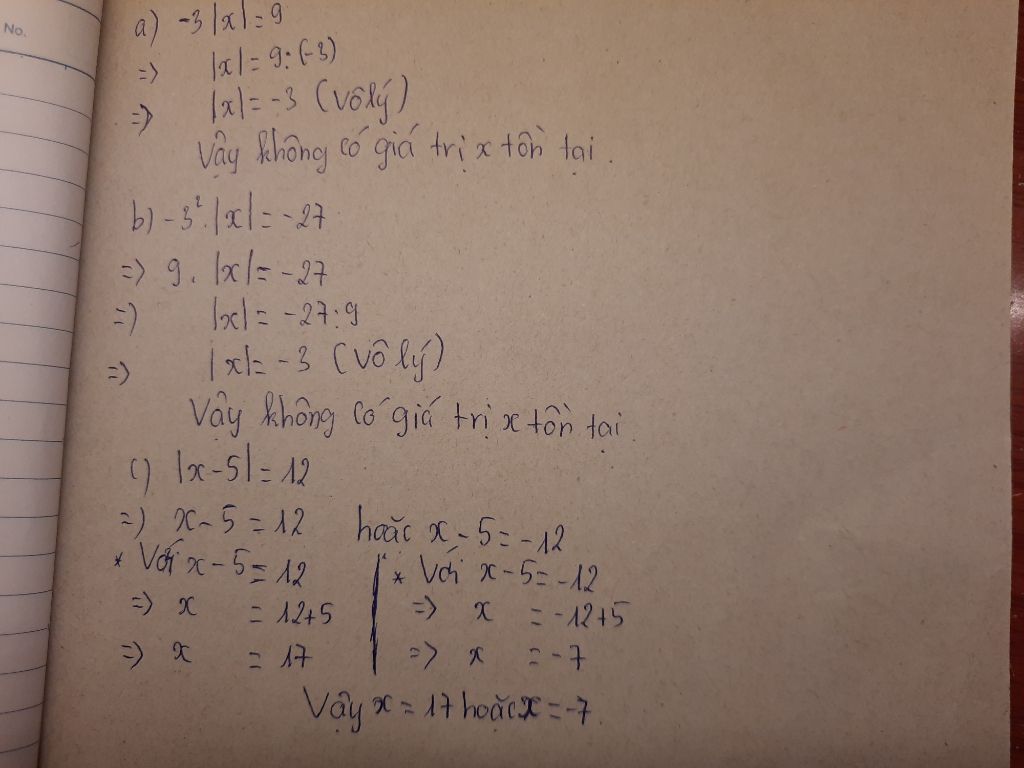 No.
a) -3 |x| = 9
=> |x| = 9 : (-3)
=> |x| = -3 (Vô lý)
Vậy không có giá trị x tồn tại.
b) -3². |x| = -27
=> 9. |x| = -27
=> |x| = -27 : 9
=> |x| = -3 (Vô lý)
Vậy không có giá trị x tồn tại.
c) |x-5| = 12
=> x-5 = 12 hoặc x-5 = -12
* Với x-5 = 12 * Với x-5 = -12
=> x = 12+5 => x = -12+5
=> x = 17 => x = -7
Vậy x = 17 hoặc x = -7.